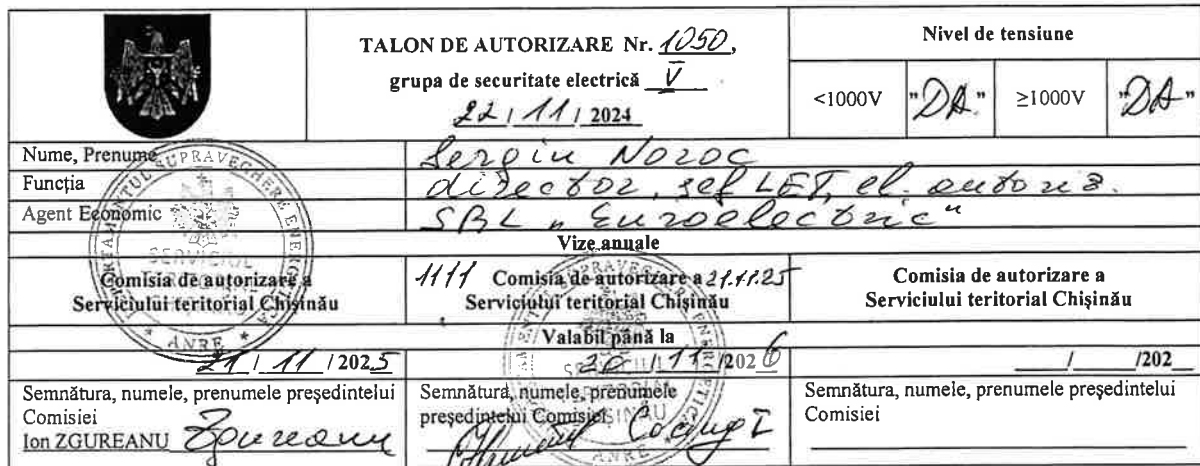 TALON DE AUTORIZARE Nr. 1050,
grupa de securitate electrică V
22 / 11 / 2024
Nivel de tensiune
<1000V "DA" ≥1000V "DA"
Nume, Prenume Sergiu Noroc
Funcția director, șef LET, el. autoriz.
Agent Economic SRL "Euroelectric"
Vize anuale
Comisia de autorizare a
Serviciului teritorial Chișinău
1111 Comisia de autorizare a 21.11.25
Serviciului teritorial Chișinău
Comisia de autorizare a
Serviciului teritorial Chișinău
Valabil până la
21 / 11 / 2025
20 / 11 / 2026
/ /202
Semnătura, numele, prenumele președintelui
Comisiei
Ion ZGUREANU Zgureanu
Semnătura, numele, prenumele
președintelui Comisiei
Semnătura, numele, prenumele președintelui
Comisiei
SUPRAVEGHERE ENERGETICĂ
SERVICIUL
ANRE
ANRE